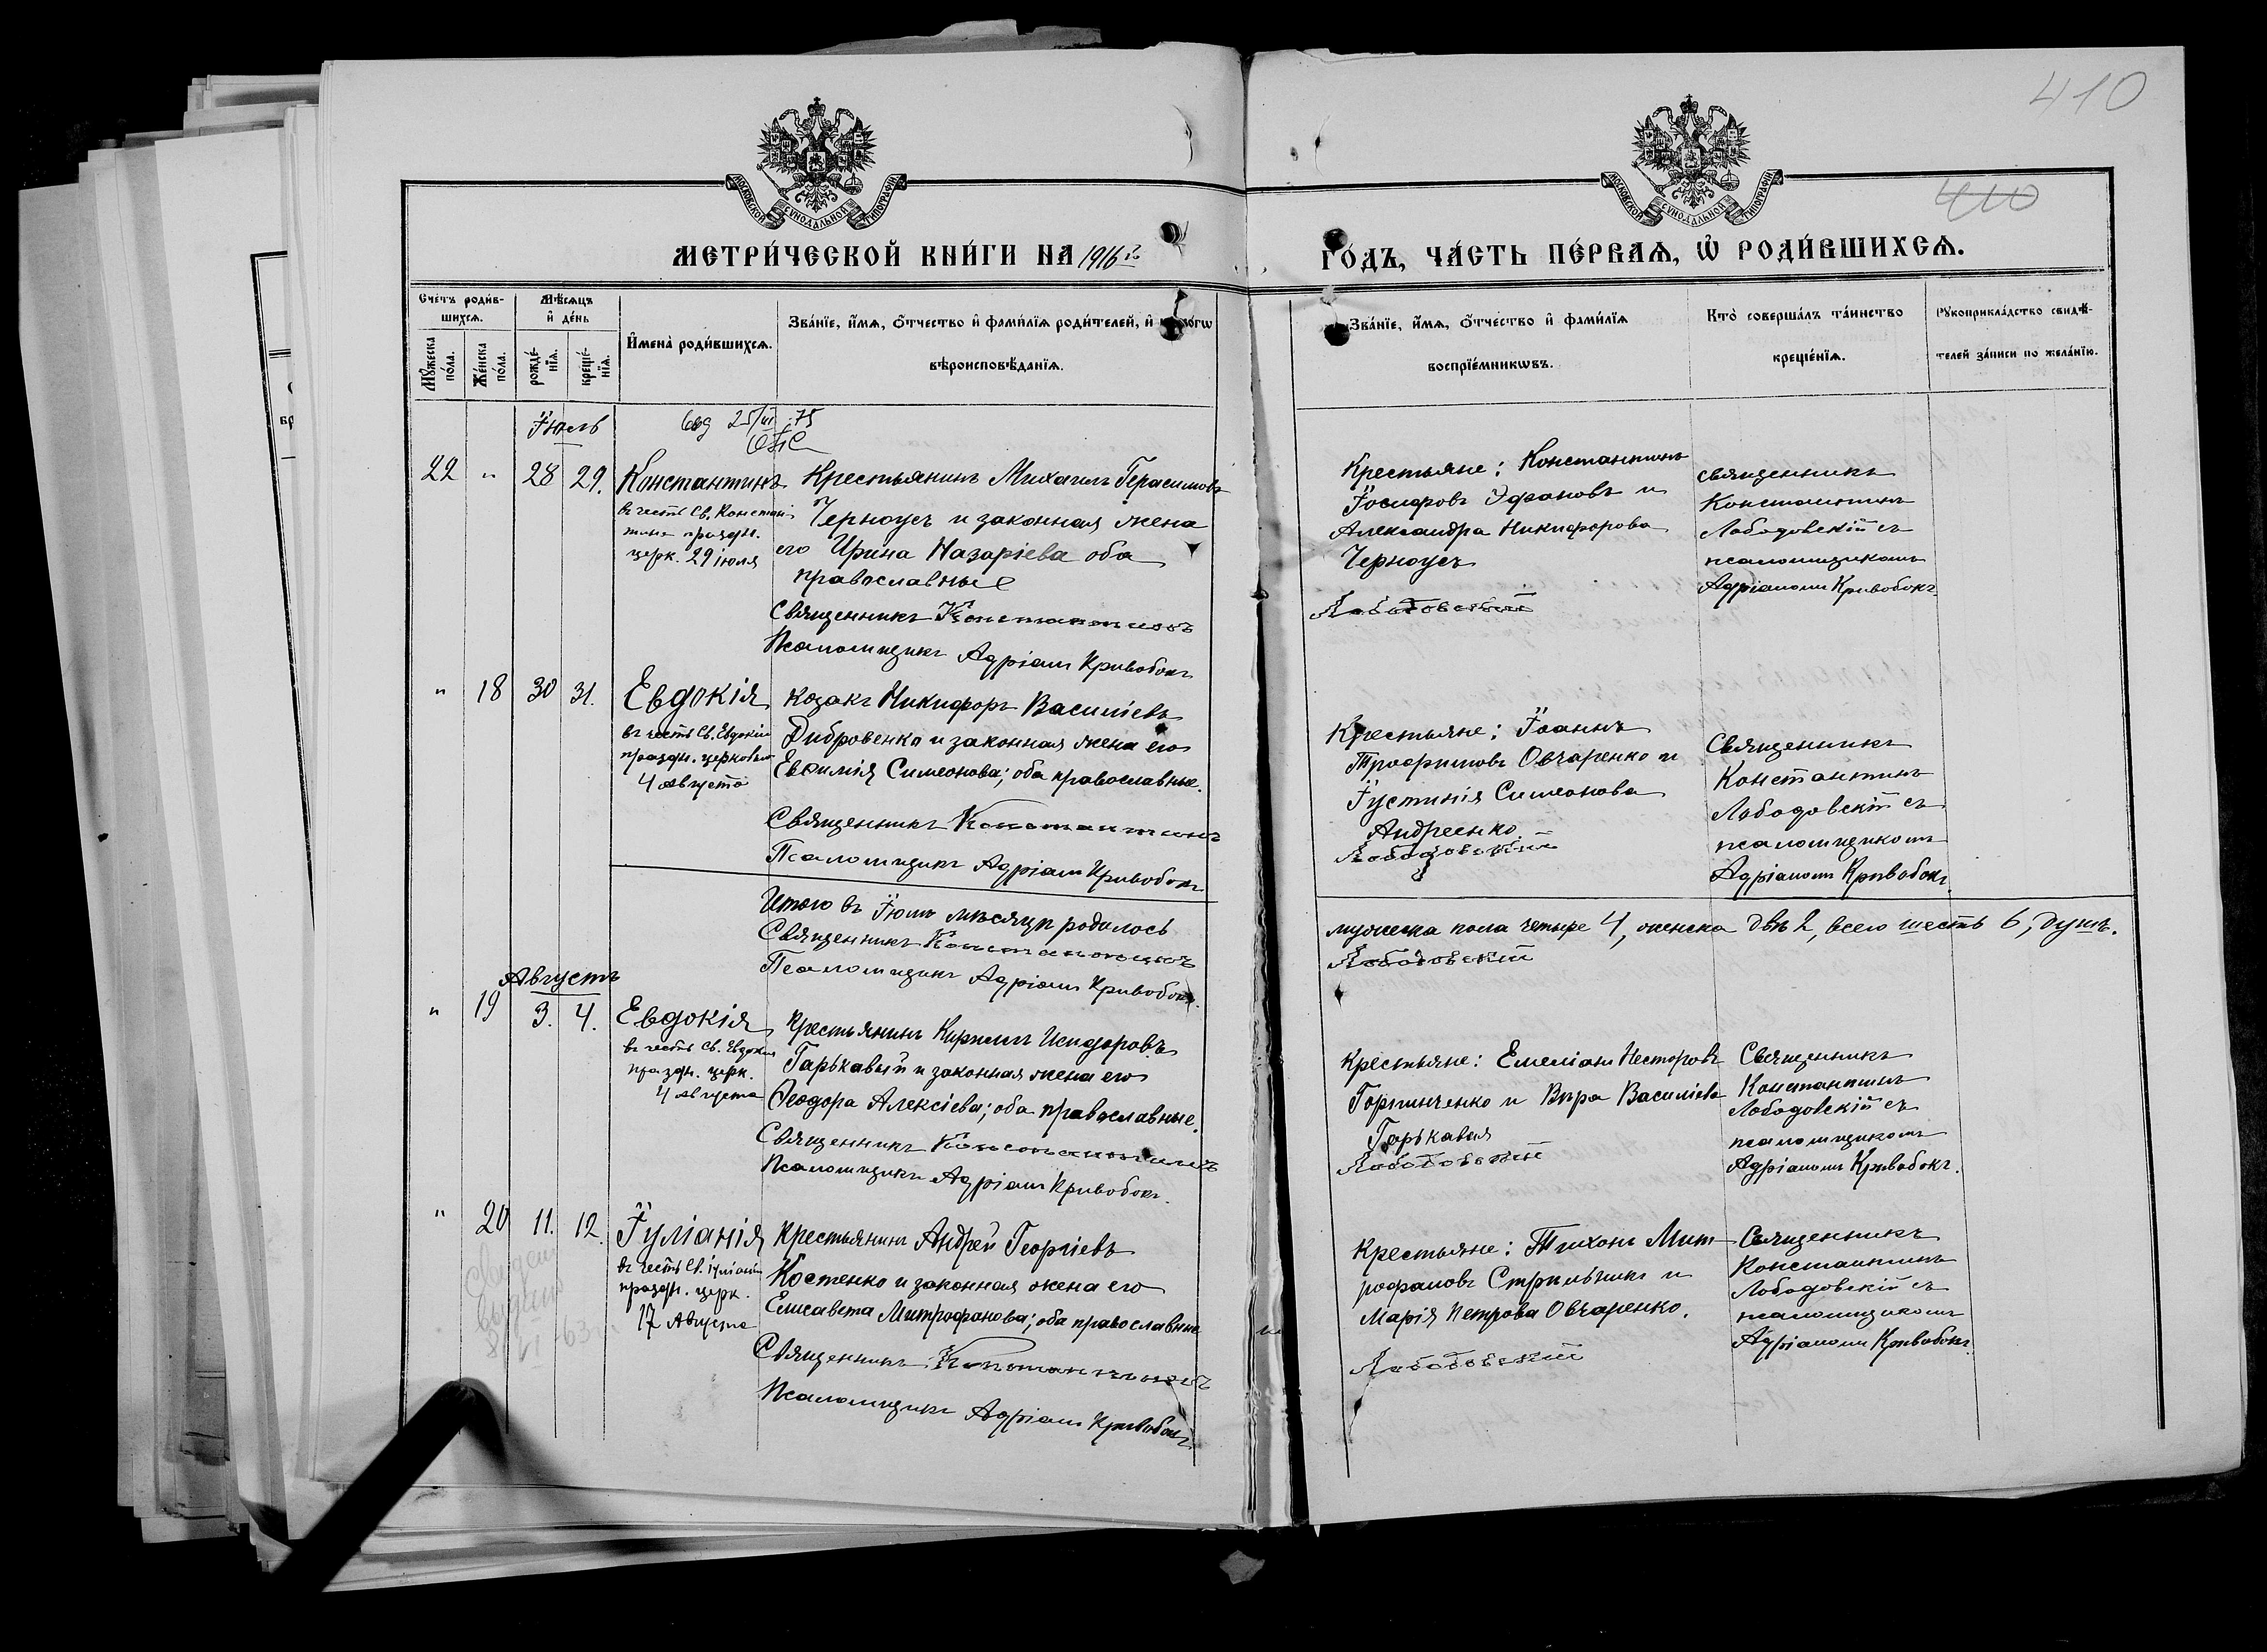 410
410
МОСКОВСКОЙ СѴНОДАЛЬНОЙ ТИПОГРАФІИ
МОСКОВСКОЙ СѴНОДАЛЬНОЙ ТИПОГРАФІИ
МЕТРИ́ЧЕСКОЙ КНИ́ГИ НА 1916 г.
ГО́ДЪ, ЧА́СТЬ ПЕ́РВАѦ, Ѡ҆ РОДИ́ВШИХСѦ.
Сче́тъ роди́в-
шихсѧ.
Мѣ́сѧцъ
и҆ де́нь
Мꙋ́жеска
по́ла.
Же́нска
по́ла.
рожде́-
нїѧ.
креще́-
нїѧ.
И҆мена̀ роди́вшихсѧ.
Зва́нїе, и҆́мѧ, ѻ҆́тчество и҆ фами́лїѧ роди́телей, и҆
вѣроисповѣ́данїѧ.
Зва́нїе, и҆́мѧ, ѻ҆́тчество и҆ фами́лїѧ
воспрїе́мникѡвъ.
Кто̀ соверша́лъ та́инство
креще́нїѧ.
Рꙋкоприкла́дство свидѣ́-
телей за́писи по жела́нїю.
Їюль
22 " 28 29. Константинъ
въ честь Св. Констан-
тина праздн.
церк. 29 іюля
Крестьянинъ Михаилъ Герасимовъ
Черноусъ и законная жена
его Ирина Назаріева оба
православные
Священникъ Константинъ
Псаломщикъ Адріанъ Кривобокъ
Крестьяне: Константинъ
Іосифовъ и
Александра Никифорова
Черноусъ
Лободовскій
священникъ
Константинъ
Лободовскій съ
псаломщикомъ
Адріаномъ Кривобокъ.
" 18 30 31. Евдокія
въ честь Св. Евдокіи
праздн. церковью
4 Августа
козакъ Никифоръ Василіевъ
Дибровенко и законная жена его
Евфимія Симеонова; оба православные.
Священникъ Константинъ
Псаломщикъ Адріанъ Кривобокъ
Крестьяне: Іоаннъ
Трофимовъ Овчаренко и
Іустинія Симеонова
Андреенко.
Лободовскій
Священникъ
Константинъ
Лободовскій съ
псаломщикомъ
Адріаномъ Кривобокъ.
Итого въ Іюлѣ мѣсяцѣ родилось
мужеска пола четыре 4, женска двѣ 2, всего шесть 6, душъ.
Священникъ Константинъ
Лободовскій
Псаломщикъ Адріанъ Кривобокъ.
Августъ
" 19 3. 4. Евдокія
въ честь Св. Евдокіи
праздн. церк.
4 Августа
Крестьянинъ Кириллъ Исидоровъ
Гарькавый и законная жена его
Ѳеодора Алексіева; оба православные.
Священникъ Константинъ
Псаломщикъ Адріанъ Кривобокъ.
Крестьяне: Емеліанъ Несторовъ
и Вѣра Василіева
Гарькавыя
Лободовскій
Священникъ
Константинъ
Лободовскій съ
псаломщикомъ
Адріаномъ Кривобокъ.
" 20 11. 12. Іуліанія
въ честь Св. Іуліаніи
праздн. церк.
17 Августа
Крестьянинъ Андрей Георгіевъ
Костенко и законная жена его
Елисавета Митрофанова; оба православные
Священникъ Константинъ
Псаломщикъ Адріанъ Кривобокъ.
Крестьяне: Тихонъ Мит-
рофановъ Стрильчикъ и
Марія Петрова Овчаренко.
Лободовскій
Священникъ
Константинъ
Лободовскій съ
псаломщикомъ
Адріаномъ Кривобокъ.